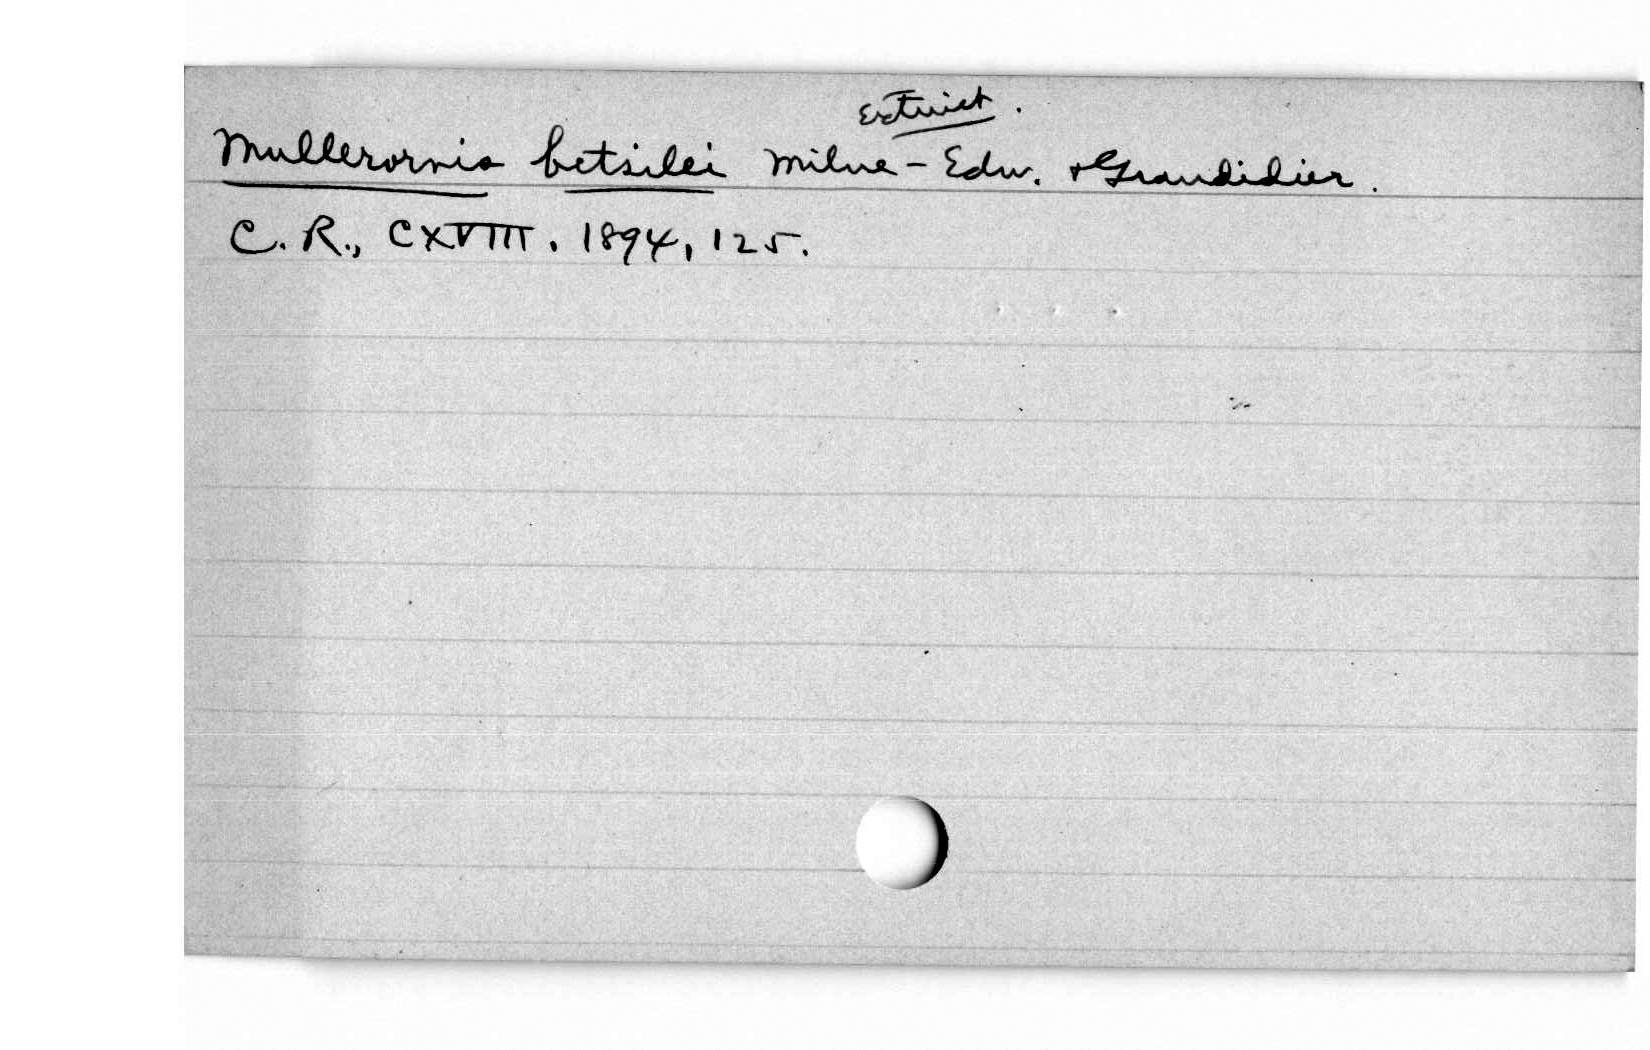 Extinct.
Mullerornis betsilei Milne-Edw. & Grandidier.
C. R., CXVIII. 1894, 125.